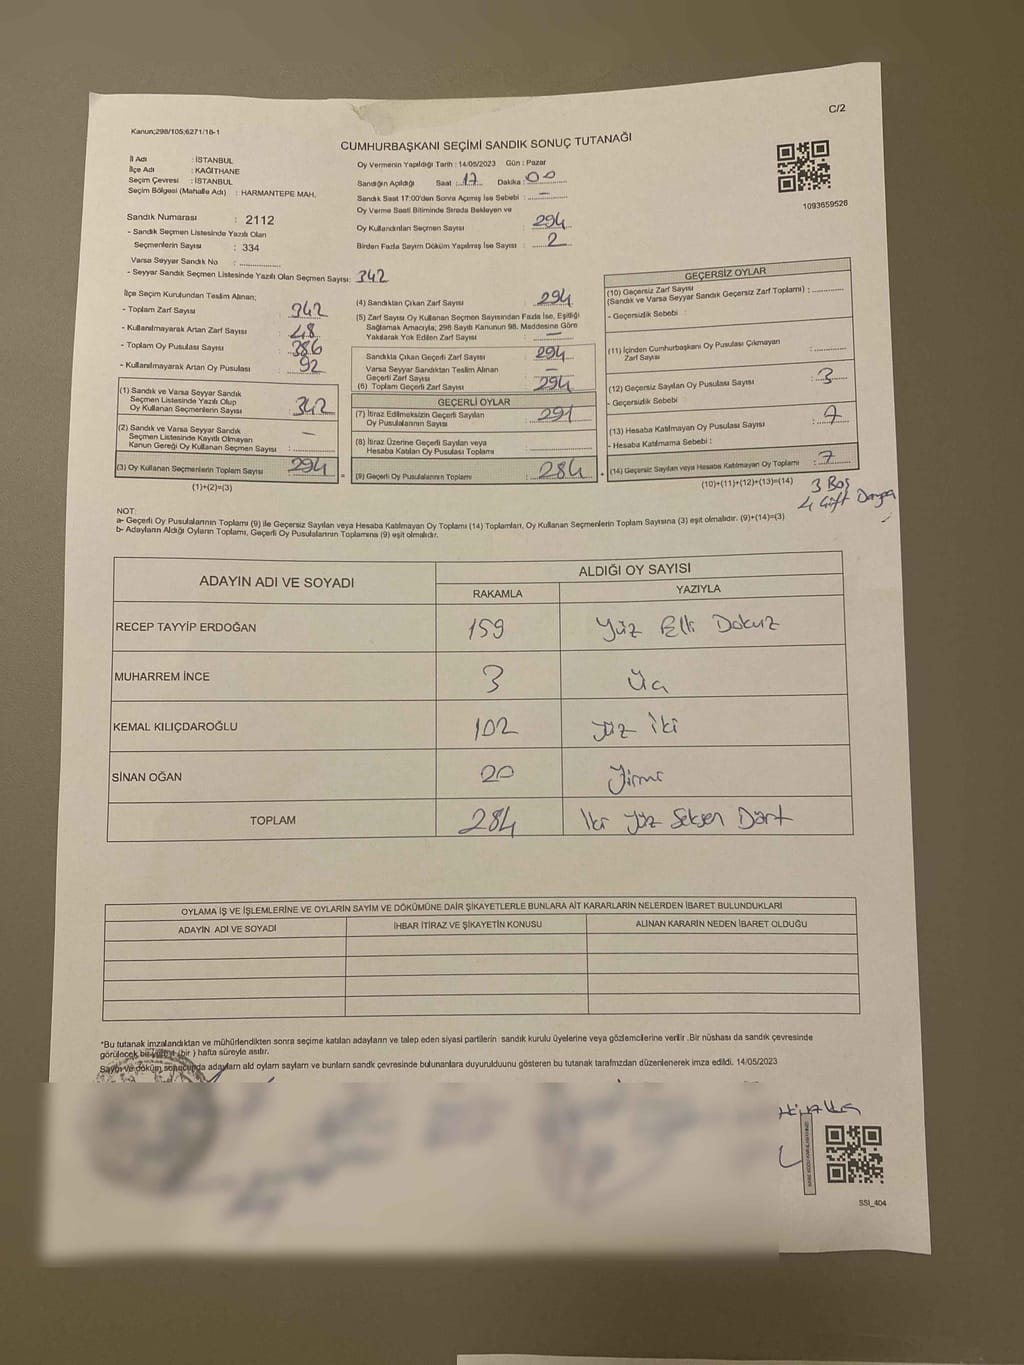 C/2
Kanun;298/105;6271/16-1
CUMHURBAŞKANI SEÇİMİ SANDIK SONUÇ TUTANAĞI
İl Adı : İSTANBUL
İlçe Adı : KAĞITHANE
Seçim Çevresi : İSTANBUL
Seçim Bölgesi (Mahalle Adı) : HARMANTEPE MAH.
Oy Vermenin Yapıldığı Tarih : 14/05/2023 Gün : Pazar
Sandığın Açıldığı Saat : 17 Dakika : 00
Sandık Saat 17:00'den Sonra Açımış İse Sebebi : —
Oy Verme Saati Bitiminde Sırada Bekleyen ve
Oy Kullandırılan Seçmen Sayısı : 294
Birden Fazla Sayım Döküm Yapılmış İse Sayısı : 2
1093659526
Sandık Numarası : 2112
- Sandık Seçmen Listesinde Yazılı Olan
Seçmenlerin Sayısı : 334
Varsa Seyyar Sandık No :
- Seyyar Sandık Seçmen Listesinde Yazılı Olan Seçmen Sayısı: 342
İlçe Seçim Kurulundan Teslim Alınan;
- Toplam Zarf Sayısı : 342
- Kullanılmayarak Artan Zarf Sayısı : 48
- Toplam Oy Pusulası Sayısı : 386
- Kullanılmayarak Artan Oy Pusulası : 92
(1) Sandık ve Varsa Seyyar Sandık
Seçmen Listesinde Yazılı Olup
Oy Kullanan Seçmenlerin Sayısı : 342
(2) Sandık ve Varsa Seyyar Sandık
Seçmen Listesinde Kayıtlı Olmayan
Kanun Gereği Oy Kullanan Seçmen Sayısı : —
(3) Oy Kullanan Seçmenlerin Toplam Sayısı : 294
(1)+(2)=(3)
(4) Sandıktan Çıkan Zarf Sayısı : 294
(5) Zarf Sayısı Oy Kullanan Seçmen Sayısından Fazla İse, Eşitliği
Sağlamak Amacıyla; 298 Sayılı Kanunun 98. Maddesine Göre
Yakılarak Yok Edilen Zarf Sayısı : —
Sandıkta Çıkan Geçerli Zarf Sayısı : 294
Varsa Seyyar Sandıktan Teslim Alınan
Geçerli Zarf Sayısı : —
(6) Toplam Geçerli Zarf Sayısı : 294
GEÇERLİ OYLAR
(7) İtiraz Edilmeksizin Geçerli Sayılan
Oy Pusulalarının Sayısı : 291
(8) İtiraz Üzerine Geçerli Sayılan veya
Hesaba Katılan Oy Pusulası Toplamı :
(9) Geçerli Oy Pusulalarının Toplamı : 284
GEÇERSİZ OYLAR
(10) Geçersiz Zarf Sayısı
(Sandık ve Varsa Seyyar Sandık Geçersiz Zarf Toplamı) :
- Geçersizlik Sebebi :
(11) İçinden Cumhurbaşkanı Oy Pusulası Çıkmayan
Zarf Sayısı :
(12) Geçersiz Sayılan Oy Pusulası Sayısı : 3
- Geçersizlik Sebebi :
(13) Hesaba Katılmayan Oy Pusulası Sayısı : 7
- Hesaba Katılmama Sebebi :
(14) Geçersiz Sayılan veya Hesaba Katılmayan Oy Toplamı : 7
(10)+(11)+(12)+(13)=(14)
3 Boş
4 Çift Damga
NOT:
a- Geçerli Oy Pusulalarının Toplamı (9) ile Geçersiz Sayılan veya Hesaba Katılmayan Oy Toplamı (14) Toplamları, Oy Kullanan Seçmenlerin Toplam Sayısına (3) eşit olmalıdır. (9)+(14)=(3)
b- Adayların Aldığı Oyların Toplamı, Geçerli Oy Pusulalarının Toplamına (9) eşit olmalıdır.
ADAYIN ADI VE SOYADI
ALDIĞI OY SAYISI
RAKAMLA YAZIYLA
RECEP TAYYİP ERDOĞAN 159 Yüz Elli Dokuz
MUHARREM İNCE 3 Üç
KEMAL KILIÇDAROĞLU 102 Yüz İki
SİNAN OĞAN 20 Yirmi
TOPLAM 284 İki Yüz Seksen Dört
OYLAMA İŞ VE İŞLEMLERİNE VE OYLARIN SAYIM VE DÖKÜMÜNE DAİR ŞİKAYETLERLE BUNLARA AİT KARARLARIN NELERDEN İBARET BULUNDUKLARI
ADAYIN ADI VE SOYADI İHBAR İTİRAZ VE ŞİKAYETİN KONUSU ALINAN KARARIN NEDEN İBARET OLDUĞU
*Bu tutanak imzalandıktan ve mühürlendikten sonra seçime katılan adayların ve talep eden siyasi partilerin sandık kurulu üyelerine veya gözlemcilerine verilir .Bir nüshası da sandık çevresinde
görülecek bir yere 1 (bir ) hafta süreyle asılır.
Sayım ve döküm sonucunda adayların ald oyların sayların ve bunların sandk çevresinde bulunanlara duyurulduunu gösteren bu tutanak tarafımzdan düzenlenerek imza edildi. 14/05/2023
SSI_404